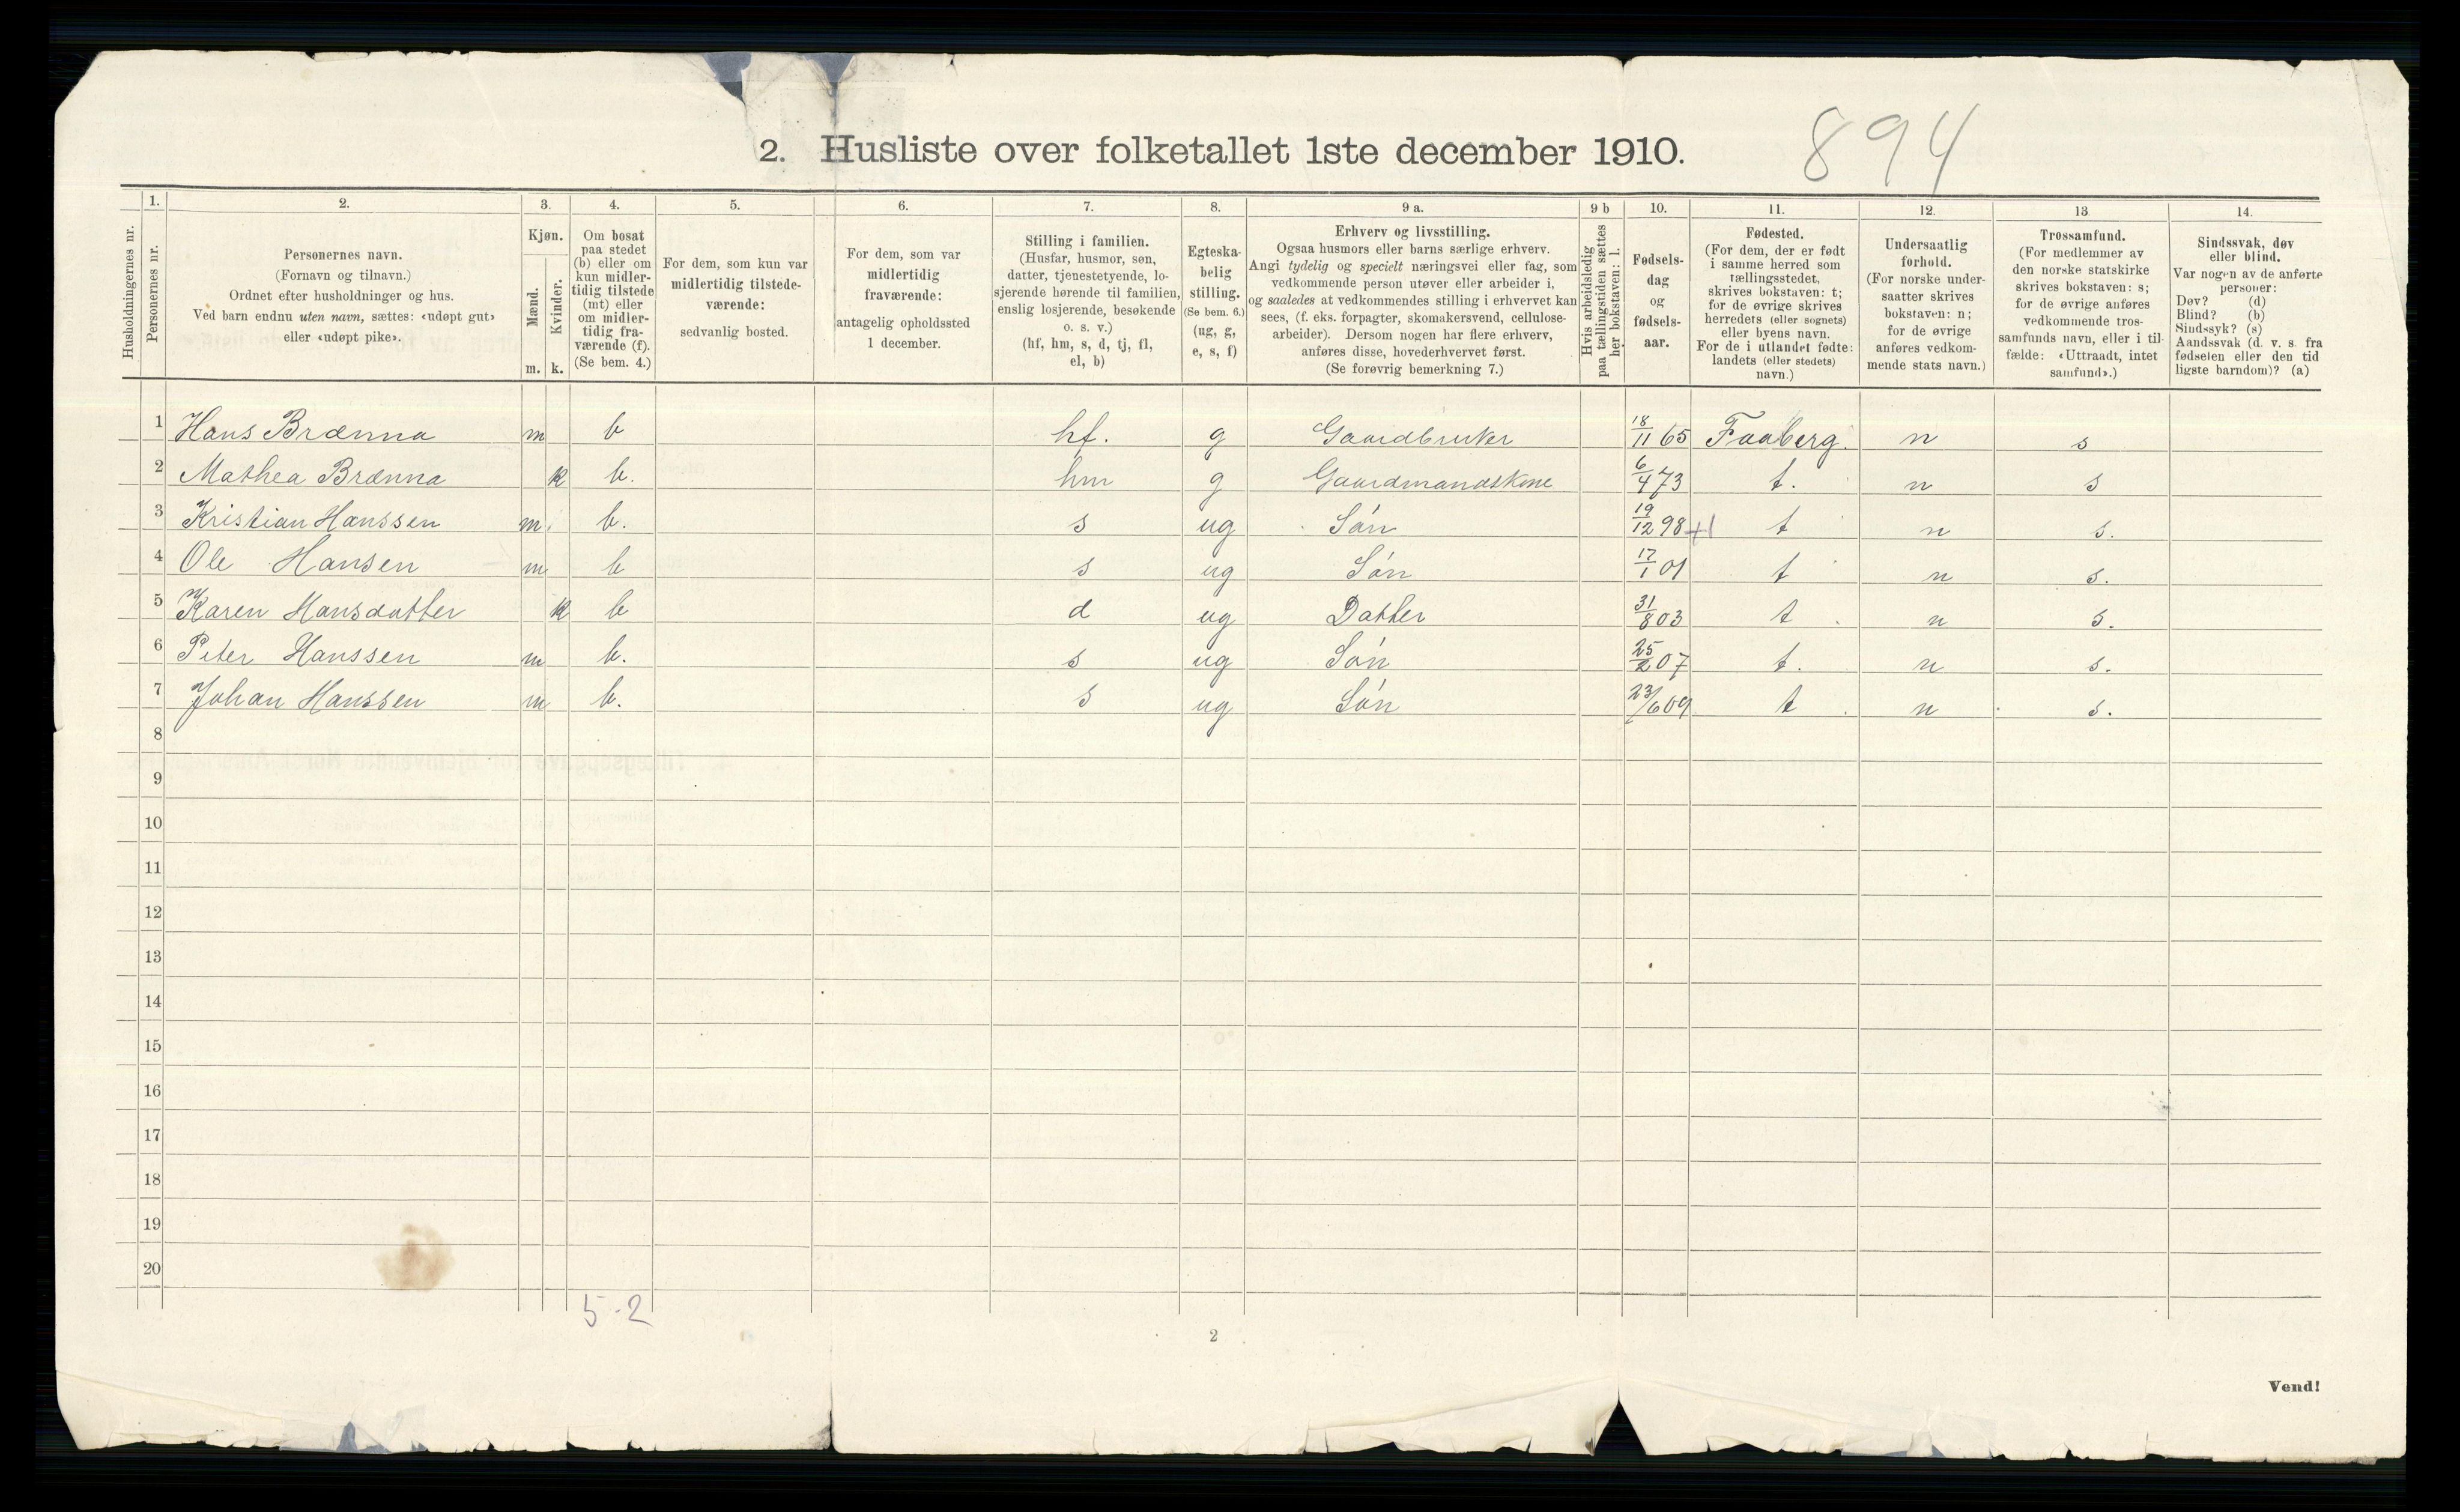 894
2. Husliste over folketallet 1ste december 1910.
Husholdningernes nr.
1.
Personernes nr.
2.
Personernes navn.
(Fornavn og tilnavn.)
Ordnet efter husholdninger og hus.
Ved barn endnu uten navn, sættes: «udøpt gut»
eller «udøpt pike».
3.
Kjøn.
Mænd.
Kvinder.
m. k.
4.
Om bosat
paa stedet
(b) eller om
kun midler-
tidig tilstede
(mt) eller
om midler-
tidig fra-
værende (f).
(Se bem. 4.)
5.
For dem, som kun var
midlertidig tilstede-
værende:
sedvanlig bosted.
6.
For dem, som var
midlertidig
fraværende:
antagelig opholdssted
1 december.
7.
Stilling i familien.
(Husfar, husmor, søn,
datter, tjenestetyende, lo-
sjerende hørende til familien,
enslig losjerende, besøkende
o. s. v.)
(hf, hm, s, d, tj, fl,
el, b)
8.
Egteska-
belig
stilling.
(Se bem. 6.)
(ug, g,
e, s, f)
9 a.
Erhverv og livsstilling.
Ogsaa husmors eller barns særlige erhverv.
Angi tydelig og specielt næringsvei eller fag, som
vedkommende person utøver eller arbeider i,
og saaledes at vedkommendes stilling i erhvervet kan
sees, (f. eks. forpagter, skomakersvend, cellulose-
arbeider). Dersom nogen har flere erhverv,
anføres disse, hovederhvervet først.
(Se forøvrig bemerkning 7.)
9 b
Hvis arbeidsledig
paa tællingstiden sættes
her bokstaven: l.
10.
Fødsels-
dag
og
fødsels-
aar.
11.
Fødested.
(For dem, der er født
i samme herred som
tællingsstedet,
skrives bokstaven: t;
for de øvrige skrives
herredets (eller sognets)
eller byens navn.
For de i utlandet fødte:
landets (eller stedets)
navn.)
12.
Undersaatlig
forhold.
(For norske under-
saatter skrives
bokstaven: n;
for de øvrige
anføres vedkom-
mende stats navn.)
13
Trossamfund.
(For medlemmer av
den norske statskirke
skrives bokstaven: s;
for de øvrige anføres
vedkommende tros-
samfunds navn, eller i til-
fælde: «Uttraadt, intet
samfund».)
14.
Sindssvak, døv
eller blind.
Var nogen av de anførte
personer:
Døv? (d)
Blind? (b)
Sindssyk? (s)
Aandssvak (d. v. s. fra
fødselen eller den tid
ligste barndom)? (a)
1 Hans Brænna m b hf. g Gaardbruker 18/11 65 Faaberg. n s
2 Mathea Brænna k b. hm g Gaardmandskone 6/4 73 t. n s
3 Kristian Hanssen m. b. s ug Søn 19/12 98 +1 t n s.
4 Ole Hansen m b s ug Søn 17/1 01 t n s.
5 Karen Hansdatter k b d ug Datter 31/8 03 t n s.
6 Peter Hanssen m b. s ug Søn 25/2 07 t. n s.
7 Johan Hanssen m b. s ug Søn 23/6 09 t n s.
8
9
10
11
12
13
14
15
16
17
18
19
20
5-2
2
Vend!